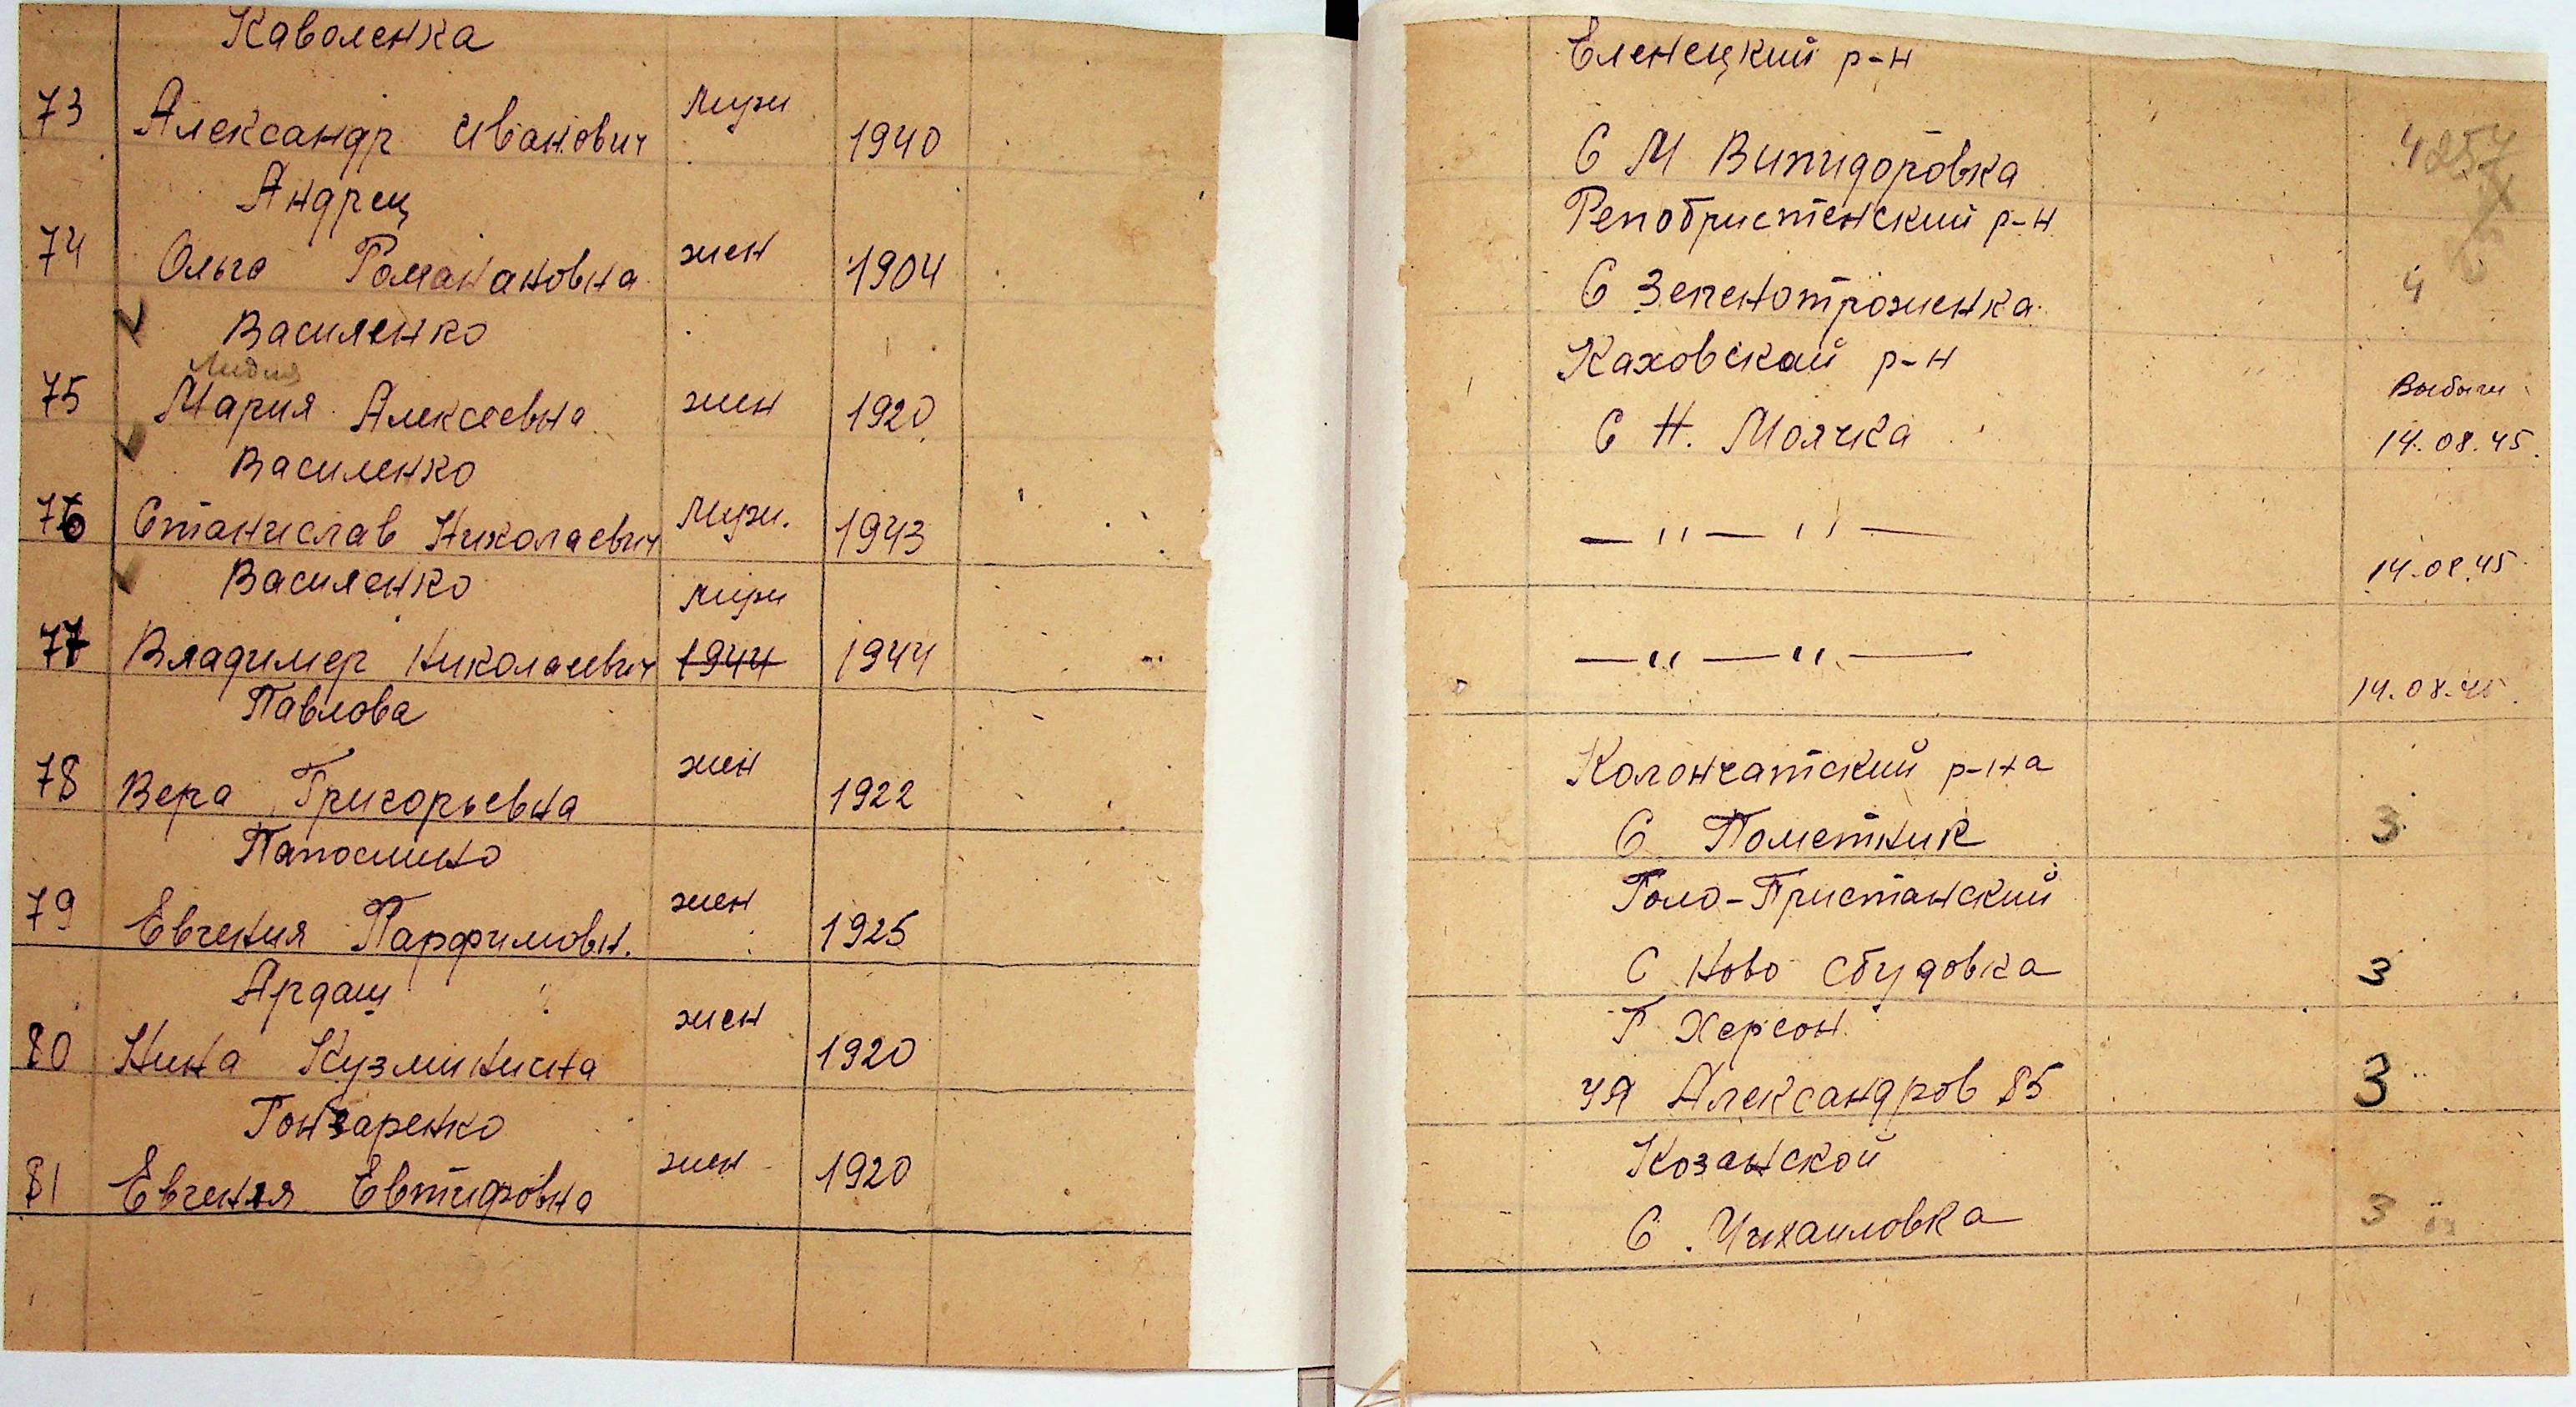 Каволенка
73 Александр Иванович муж 1940
Андрец
74 Ольга Романановна жен 1904
Василенко
Лидия
75 Мария Алексеевна жен 1920
Василенко
76 Станислав Николаевич муж. 1943
Василенко
77 Владимер Николаевич муж 1944 1944
Павлова
78 Вера Григорьевна жен 1922
Папосмино
79 Евгения Парфимовн. жен 1925
Ардащ
80 Нина Кузминисна жен 1920
Гончаренко
81 Евгения Евтифовна жен 1920
Еленецкий р-н
С М Випидоровка
Репобристенский р-н
С Зеленотроженка 4
Каховский р-н
Выбыли
С Н. Маячка 14.08.45.
— " — " — 14.08.45.
— " — " — 14.08.45.
Колончатский р-на
С Пометник 3
Голо-Пристанский
С Ново Сбудовка 3
Г Херсон
Ул Александров 85 3
Козанской
С. Чихаиловка 3